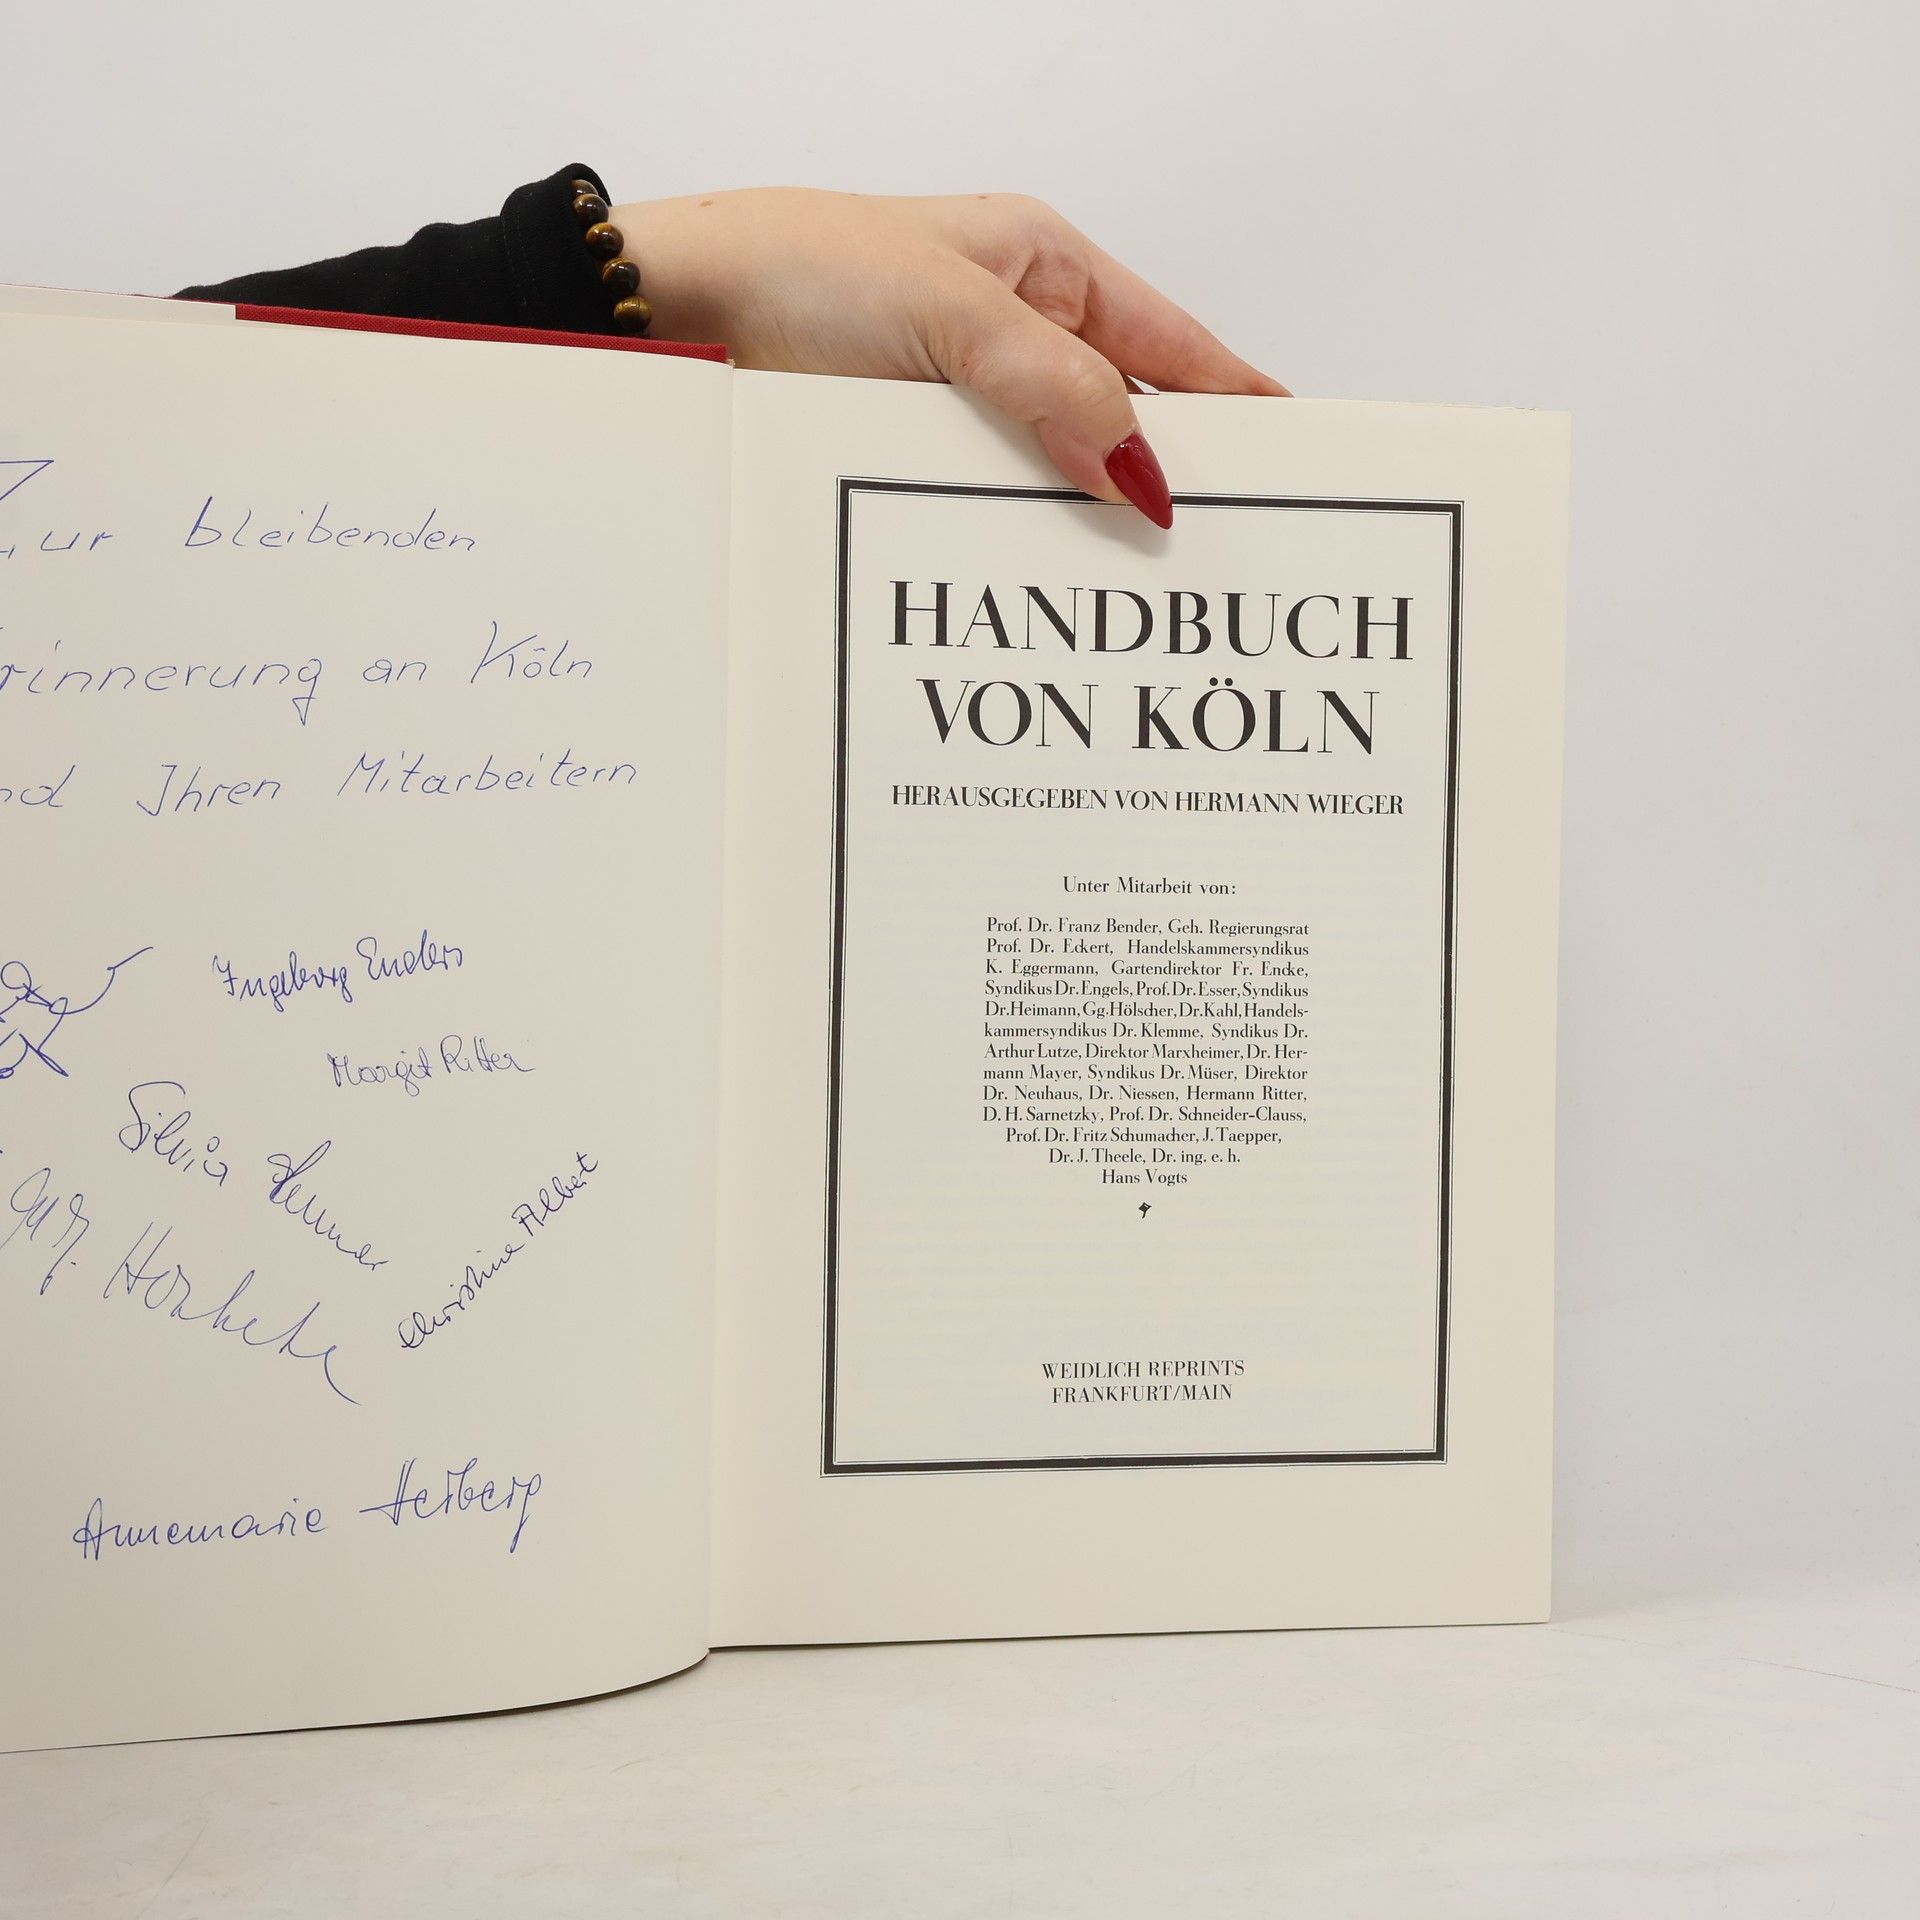 Zur bleibenden
Erinnerung an Köln
und Ihren Mitarbeitern
Ingeborg Enders
Margit Ritter
Silvia
Christine Albert
Annemarie Herberg
HANDBUCH
VON KÖLN
HERAUSGEGEBEN VON HERMANN WIEGER
Unter Mitarbeit von:
Prof. Dr. Franz Bender, Geh. Regierungsrat
Prof. Dr. Eckert, Handelskammersyndikus
K. Eggermann, Gartendirektor Fr. Encke,
Syndikus Dr. Engels, Prof. Dr. Esser, Syndikus
Dr. Heimann, Gg. Hölscher, Dr. Kahl, Handels-
kammersyndikus Dr. Klemme, Syndikus Dr.
Arthur Lutze, Direktor Marxheimer, Dr. Her-
mann Mayer, Syndikus Dr. Müser, Direktor
Dr. Neuhaus, Dr. Niessen, Hermann Ritter,
D. H. Sarnetzky, Prof. Dr. Schneider-Clauss,
Prof. Dr. Fritz Schumacher, J. Taepper,
Dr. J. Theele, Dr. ing. e. h.
Hans Vogts
WEIDLICH REPRINTS
FRANKFURT/MAIN